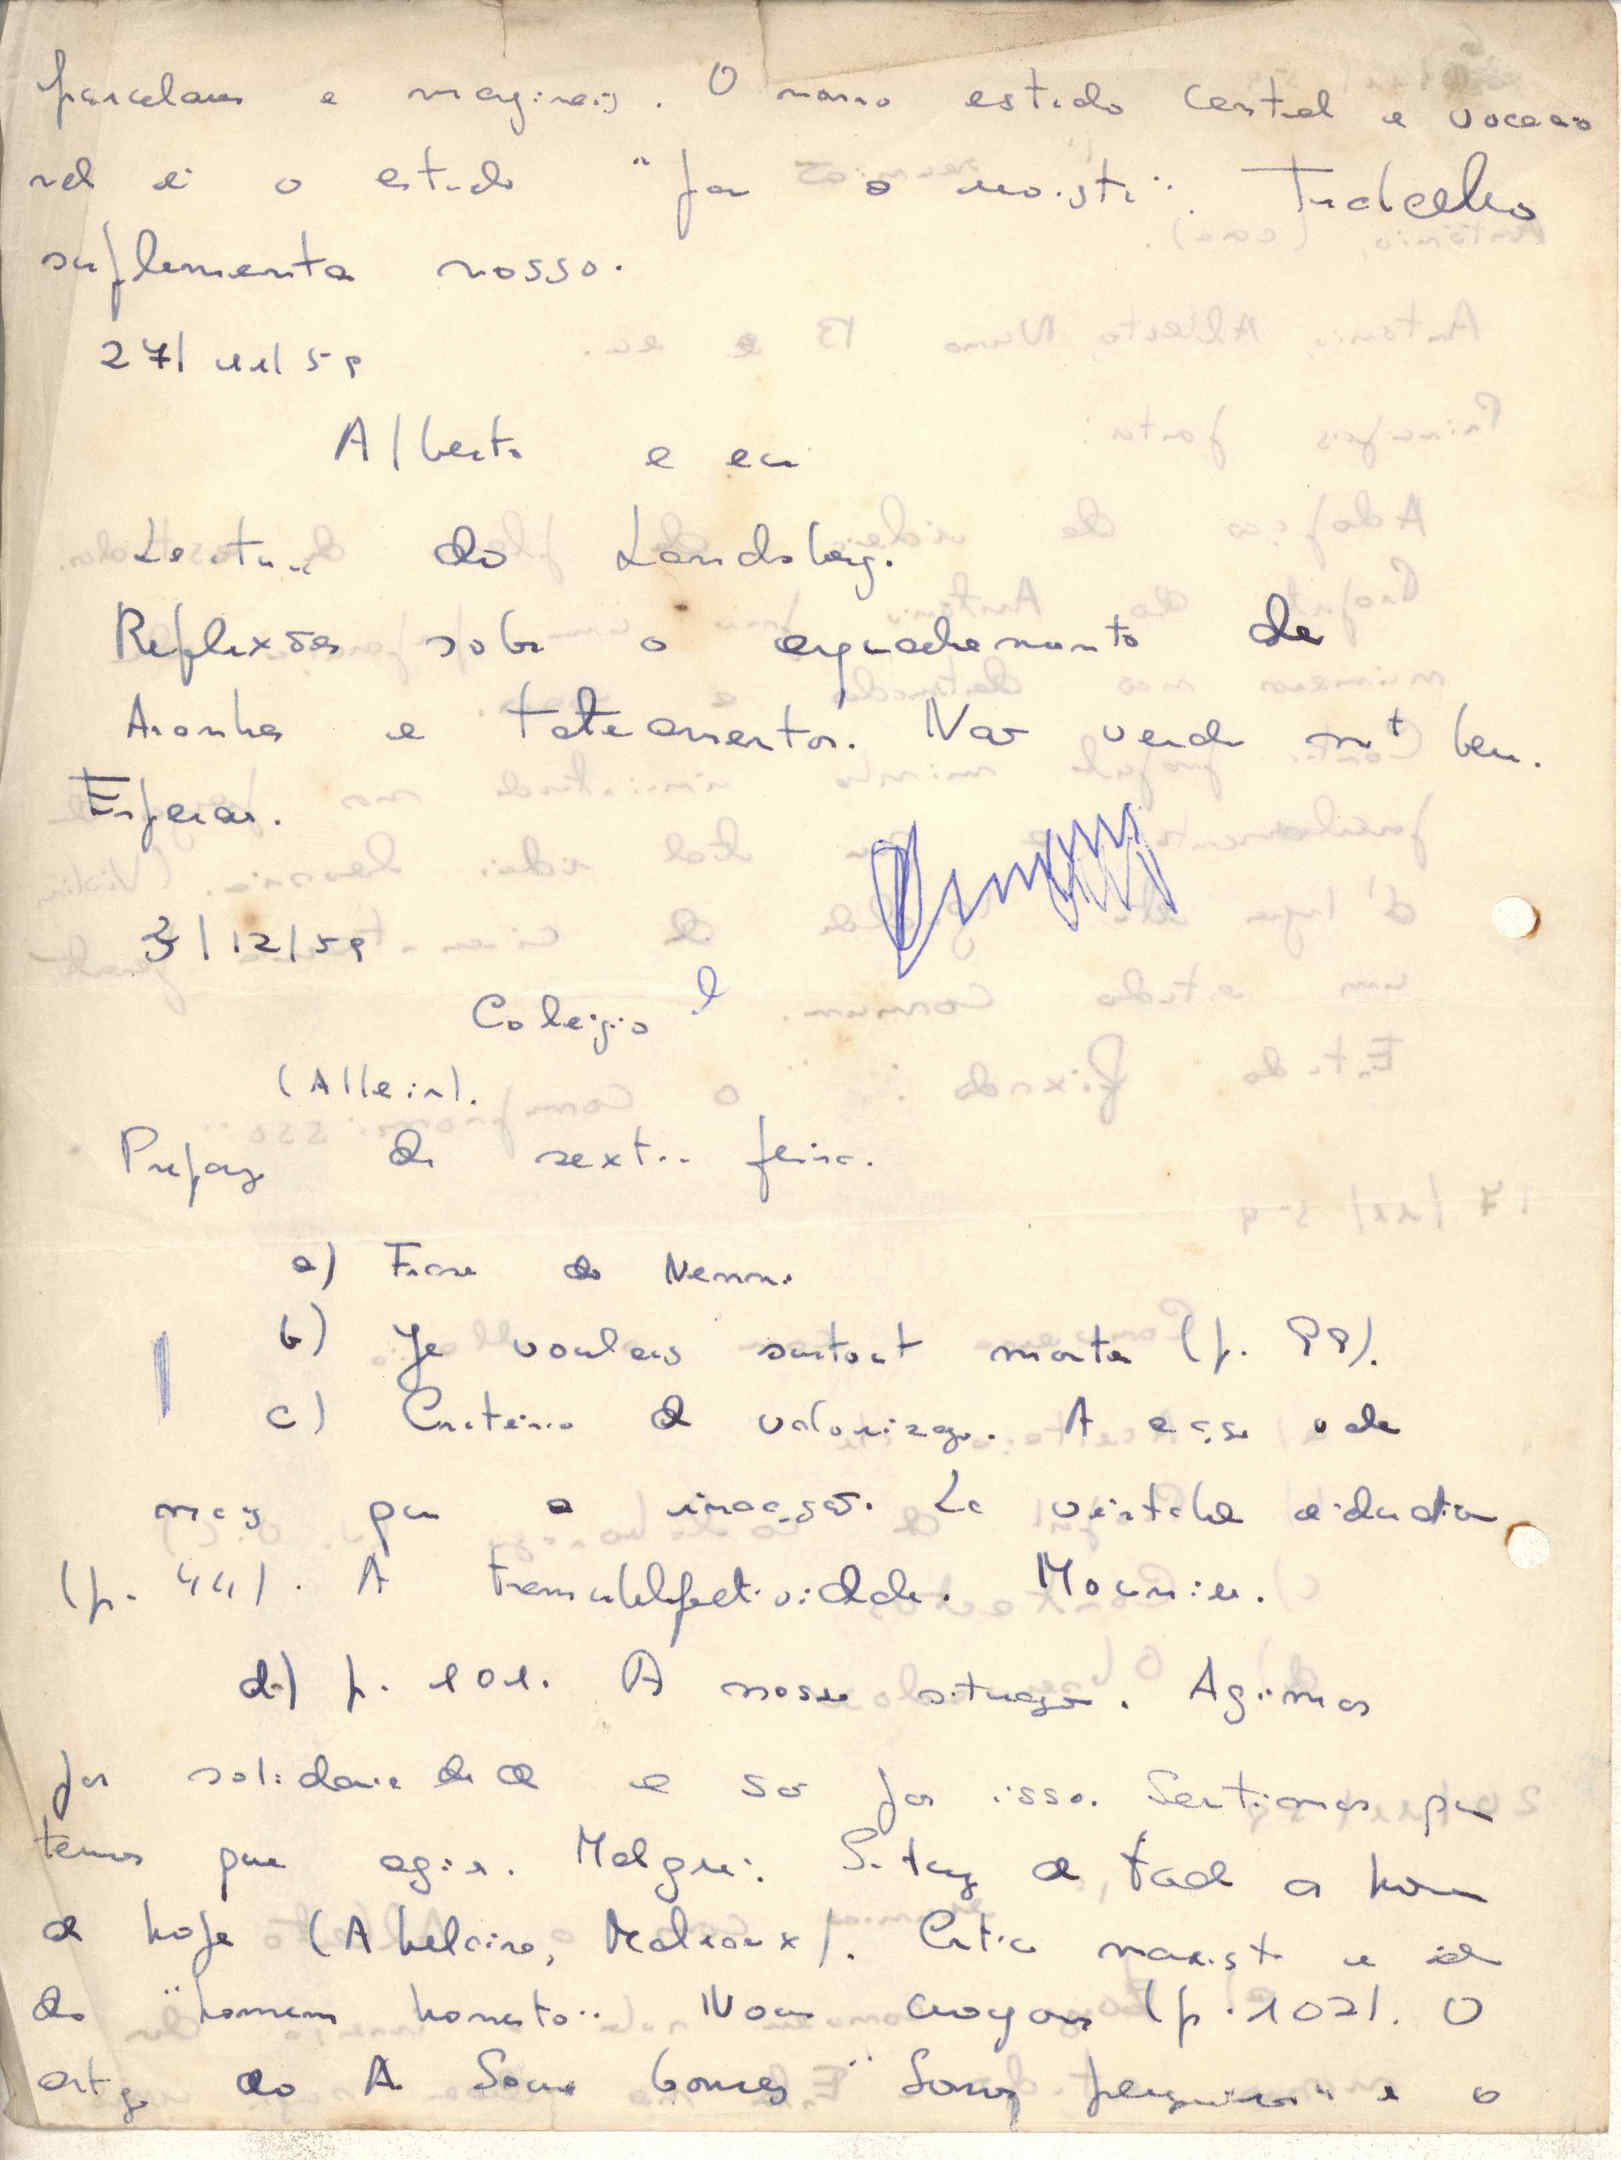 parcelares e marginais. O nosso estudo central e vocacio
nal é o estudo "por a revista". Trabalho
suplementar nosso.
27/11/59
Alberto e eu
Leitura do Landsberg.
Reflexões sobre o enquadramento de
Aranha e . Nao vendo mt bem.
Esperar.
3/12/59
Colégio
(Allein).
Prepaç de sexta-feira.
a) Frase do Nenni
b) Je voulais surtout montrer (p. 99).
c) Critério de valorizaçao. A acçao vale
mais que a inacçao. La véritable éducation
(p. 44). A . Mounier.
d) p. 101. A nossa situaçao. Agimos
por solidariedade e só por isso. Sentimos que
temos que agir. Malgré. Situaç de todo o homem
de hoje (Abelaira, Malraux). Critica marxista e id
do "homem honesto". Nous croyons (p. 102). O
artgo do A Sousa Gomes "Somos pequenos" e o